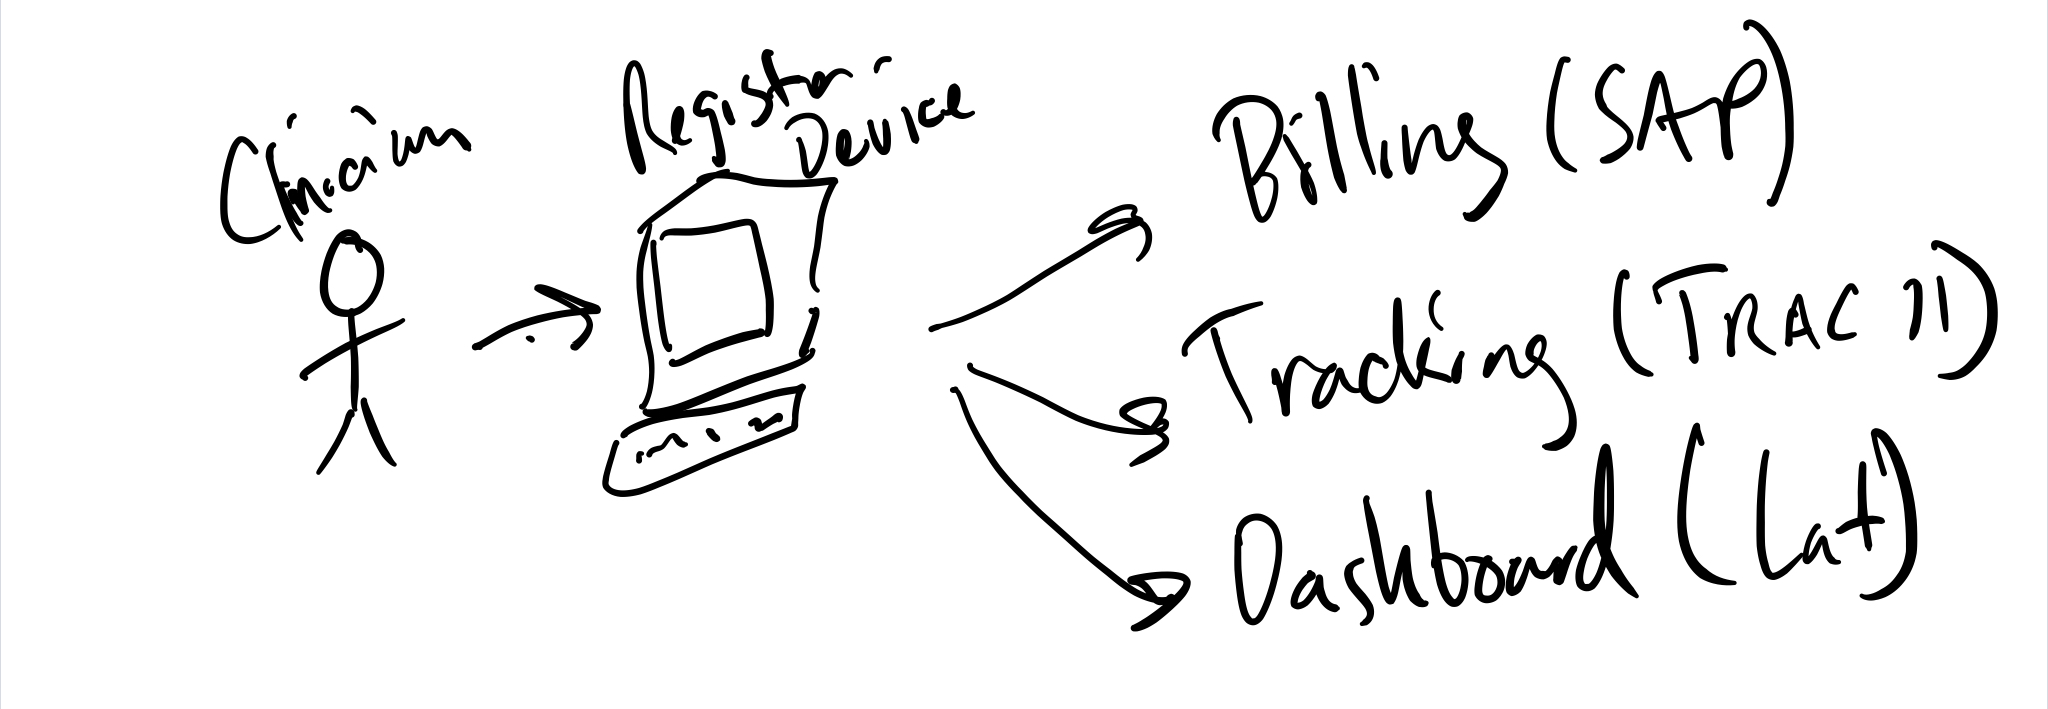 Clinician
Register
Device
Billing (SAP)
Tracking (TRAC II)
Dashboard (Lat)